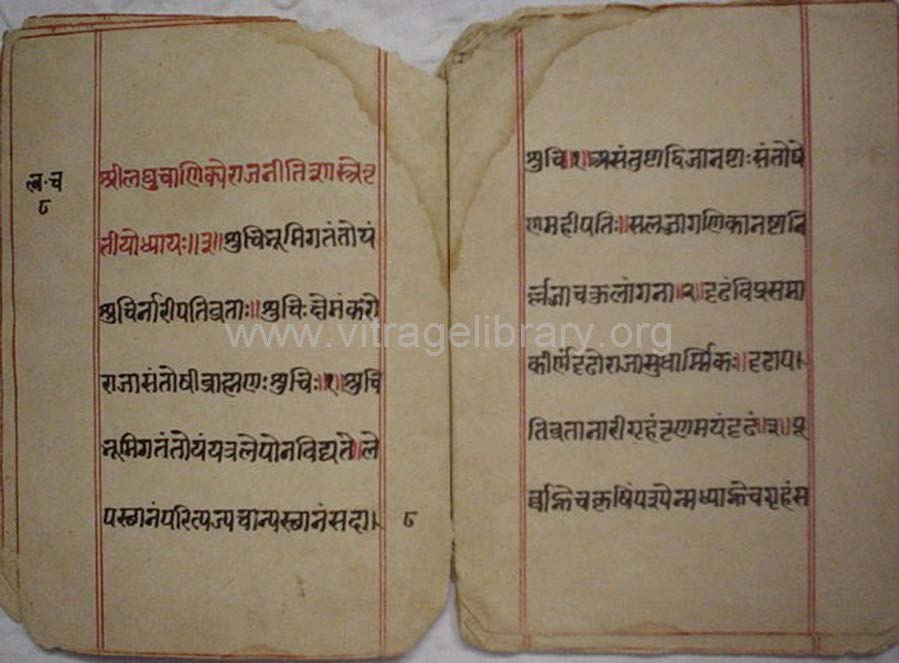 ल॰च
८
श्रीलघुचाणिक्येराजनीतिशास्त्रेतृ
तीयोध्यायः॥३॥शुचिभूमिगतंतोयं
शुचिर्नारीपतिव्रताः॥शुचिःक्षेमंकरो
राजासंतोषीब्राह्मणःशुचिः॥१॥शुचि
भूमिगतंतोयंयत्रलेपोनविद्यते॥ले
पस्छानंपरित्यज्यचान्यस्छानंसदा।
८
शुचि॥१॥असंतुष्टाद्विजानष्टाःसंतोषे
णमहीपतिः॥सलज्जागणिकानष्टानि
र्ल्लज्जाचकुलांगना॥२॥दृढंविप्रसमा
कीर्णंदृढोराजासुधार्म्मिकः॥दृढाप।
तिव्रतानारीगृहंतृणमयंदृढं॥३॥पू
र्वाह्नेचकृषिंपश्येन्मध्याह्नेचगृहंस
www.vitragelibrary.org